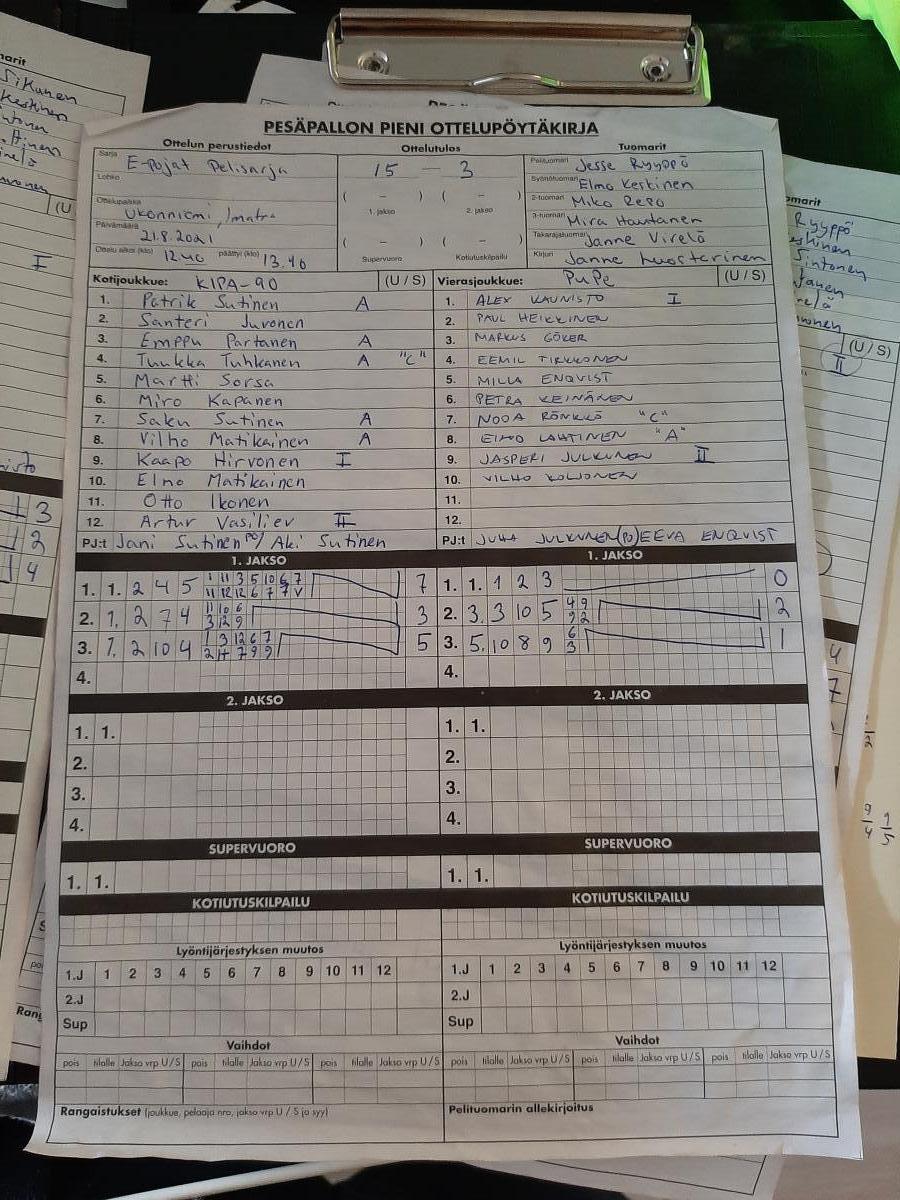 PESÄPALLON PIENI OTTELUPÖYTÄKIRJA
Ottelun perustiedot
Sarja E-pojat Pelisarja
Lohko
Ottelupaikka Ukonniemi, Imatra
Päivämäärä 21.8.2021
Ottelu alkoi (klo) 12.40 päättyi (klo) 13.40
Ottelutulos
15 — 3
( – ) ( – )
1. jakso 2. jakso
( – ) ( – )
Supervuoro Kotiutuskilpailu
Tuomarit
Pelituomari Jesse Ryyppö
Syöttötuomari Elmo Keskinen
2-tuomari Miko Repo
3-tuomari Mira Hautanen
Takarajatuomari Janne Virelä
Kirjuri Janne Luostarinen
Kotijoukkue: KIPA-90 (U / S)
1. Patrik Sutinen A
2. Santeri Juvonen
3. Emppu Partanen A
4. Tuukka Tuhkanen A "C"
5. Martti Sorsa
6. Miro Kapanen
7. Saku Sutinen A
8. Vilho Matikainen A
9. Kaapo Hirvonen I
10. Elmo Matikainen
11. Otto Ikonen
12. Artur Vasiliev II
PJ:t Jani Sutinen PJ / Aki Sutinen
Vierasjoukkue: PuPe (U / S)
1. ALEX KAUNISTO I
2. PAUL HEIKKINEN
3. MARKUS GÖKER
4. EEMIL TIRKKONEN
5. MILLA ENQVIST
6. PETRA KEINÄNEN
7. NOOA RÖNKKÖ "C"
8. EINO LAHTINEN "A"
9. JASPERI JULKUNEN II
10. VILHO KOLJONEN
11.
12.
PJ:t JUHA JULKUNEN (PJ) EEVA ENQVIST
1. JAKSO
1. 1. 2 4 5 7
2. 1. 2 7 4 3
3. 1. 2 10 4 5
4.
1. JAKSO
1. 1. 1 2 3 0
2. 3. 3 10 5 4 9 2
9 2
3. 5. 10 8 9 6 1
3
4.
2. JAKSO
1. 1.
2.
3.
4.
2. JAKSO
1. 1.
2.
3.
4.
SUPERVUORO
1. 1.
SUPERVUORO
1. 1.
KOTIUTUSKILPAILU
KOTIUTUSKILPAILU
Lyöntijärjestyksen muutos
1.J 1 2 3 4 5 6 7 8 9 10 11 12
2.J
Sup
Lyöntijärjestyksen muutos
1.J 1 2 3 4 5 6 7 8 9 10 11 12
2.J
Sup
Vaihdot
pois tilalle Jakso vrp U / S pois tilalle Jakso vrp U / S pois tilalle Jakso vrp U / S
Vaihdot
pois tilalle Jakso vrp U / S pois tilalle Jakso vrp U / S pois tilalle Jakso vrp U / S
Rangaistukset (joukkue, pelaaja nro, jakso vrp U / S ja syy)
Pelituomarin allekirjoitus